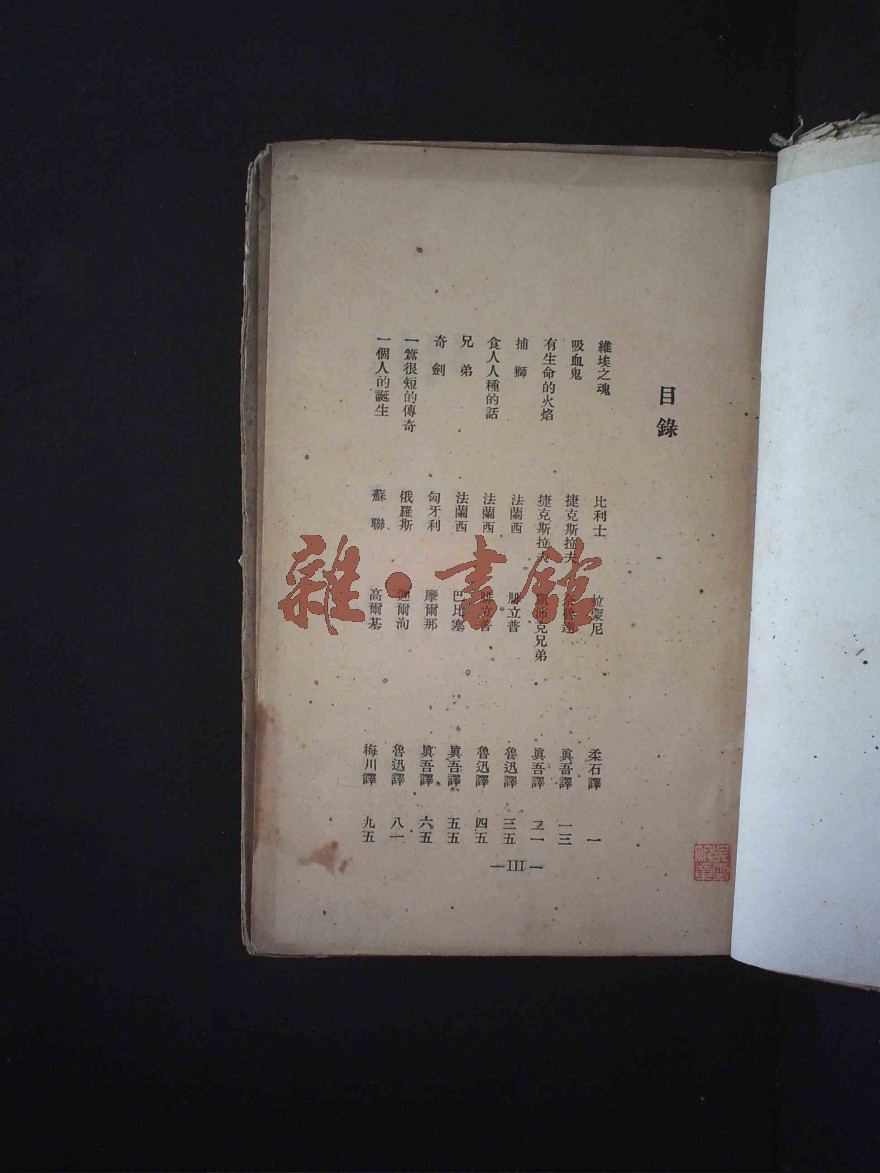 目錄
維埃之魂 比利士 拉蒙尼 柔石譯 一
吸血鬼 捷克斯拉夫 眞吾譯 一三
有生命的火焰 捷克斯拉夫 克兄弟 眞吾譯 二一
捕獅 法蘭西 腓立普 魯迅譯 三五
食人人種的話 法蘭西 腓立普 魯迅譯 四五
兄弟 法蘭西 巴比塞 眞吾譯 五五
奇劍 匈牙利 摩爾那 眞吾譯 六五
一篇很短的傳奇 俄羅斯 迦爾洵 魯迅譯 八一
一個人的誕生 蘇聯 高爾基 梅川譯 九五
—III—
雜·書館